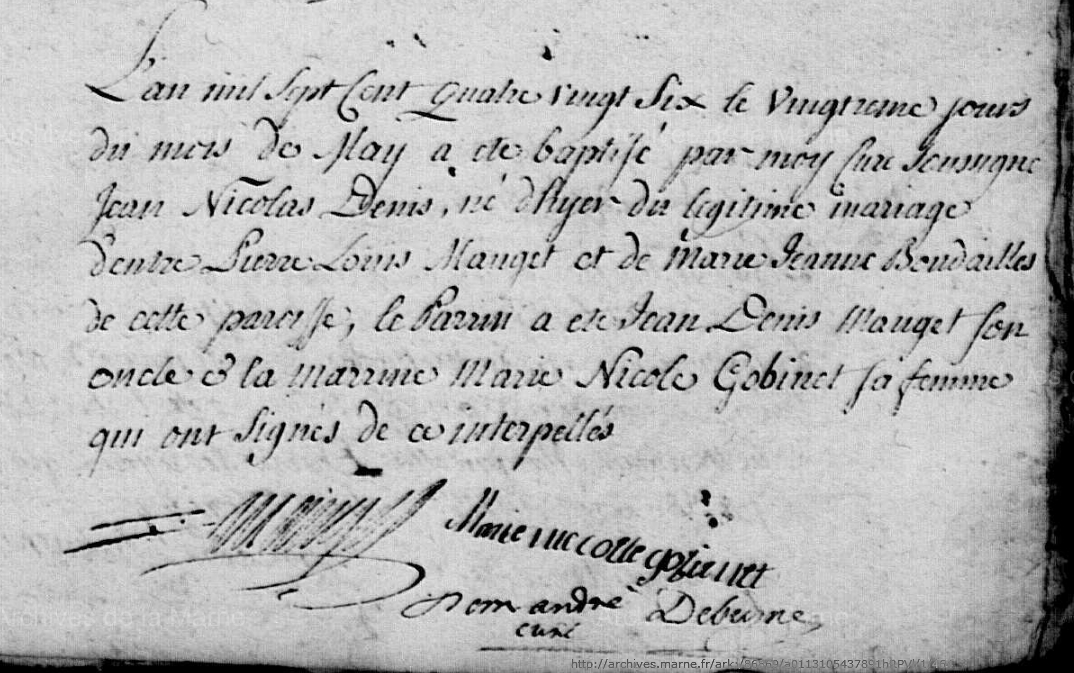 L'an mil Sept Cent Quatre vingt Six le vingtieme jours
du mois de May a ete baptisé par moy Curé Soussigné
Jean Nicolas Denis, né d'hyer du légitime mariage
d'entre Pierre Louis Mauget et de Marie Jeanne Boudailles
de cette paroisse, le Parrin a ete Jean Denis Mauget son
oncle & la marrine Marie Nicole Gobinet sa femme
qui ont Signés de ce interpellés
Marie niccolle gobinet
Dom andré
curé
http://archives.marne.fr/ark:/86869/a011310543789